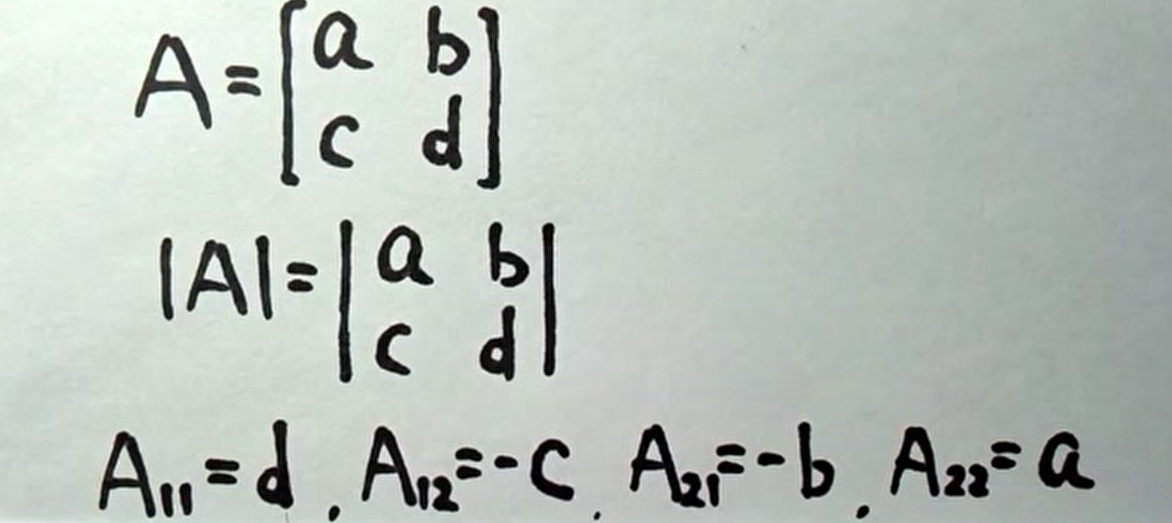 A = [a b
c d]
|A| = |a b
c d|
A₁₁ = d, A₁₂ = -c, A₂₁ = -b, A₂₂ = a